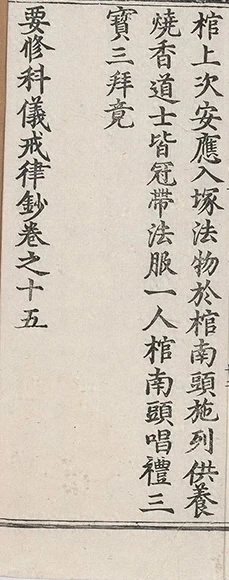 棺上次安應入塚法物於棺南頭施列供養
燒香道士皆冠帶法服一人棺南頭唱禮三
寶三拜竟
要修科儀戒律鈔卷之十五